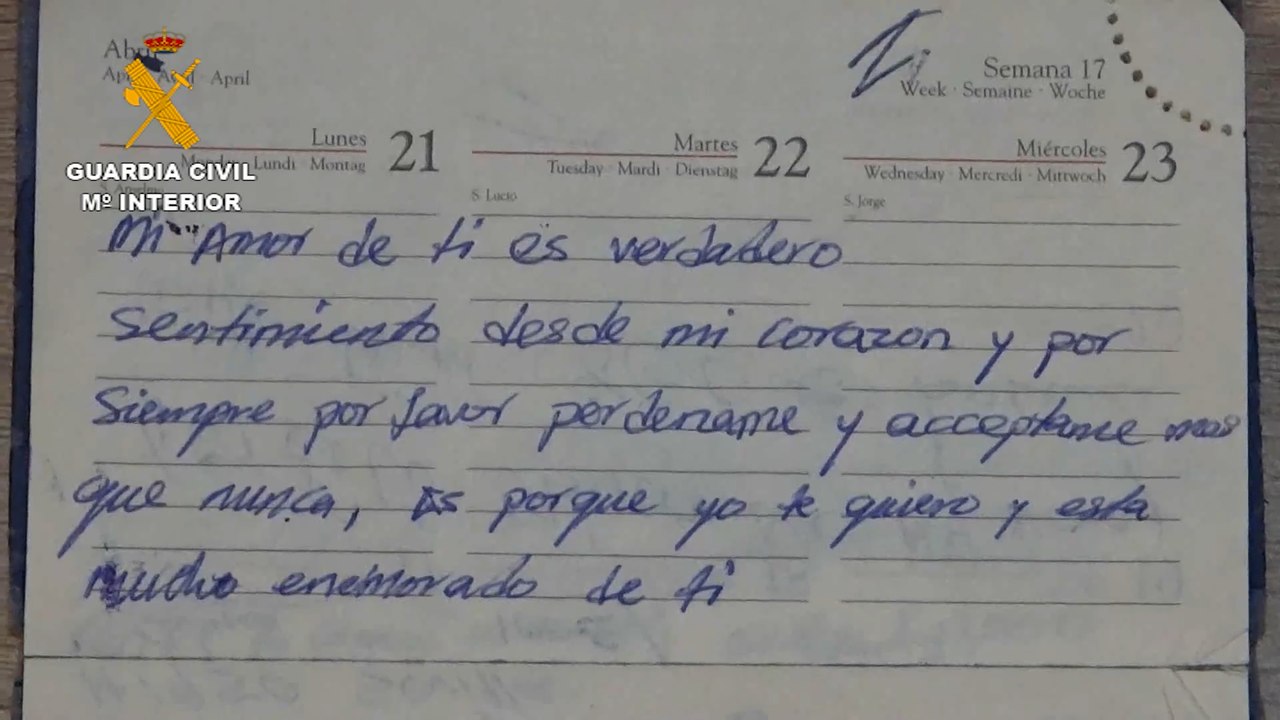 Abril
April · Avril · April
Semana 17
Week · Semaine · Woche
Lunes 21
Monday · Lundi · Montag
Martes 22
Tuesday · Mardi · Dienstag
Miércoles 23
Wednesday · Mercredi · Mittwoch
GUARDIA CIVIL
Mº INTERIOR
S. Anselmo
S. Lucio
S. Jorge
Mi Amor de ti es verdadero
sentimiento desde mi corazon y por
siempre por favor perdename y acceptame mas
que nunca, Es porque yo te quiero y esta
mucho enemorado de ti